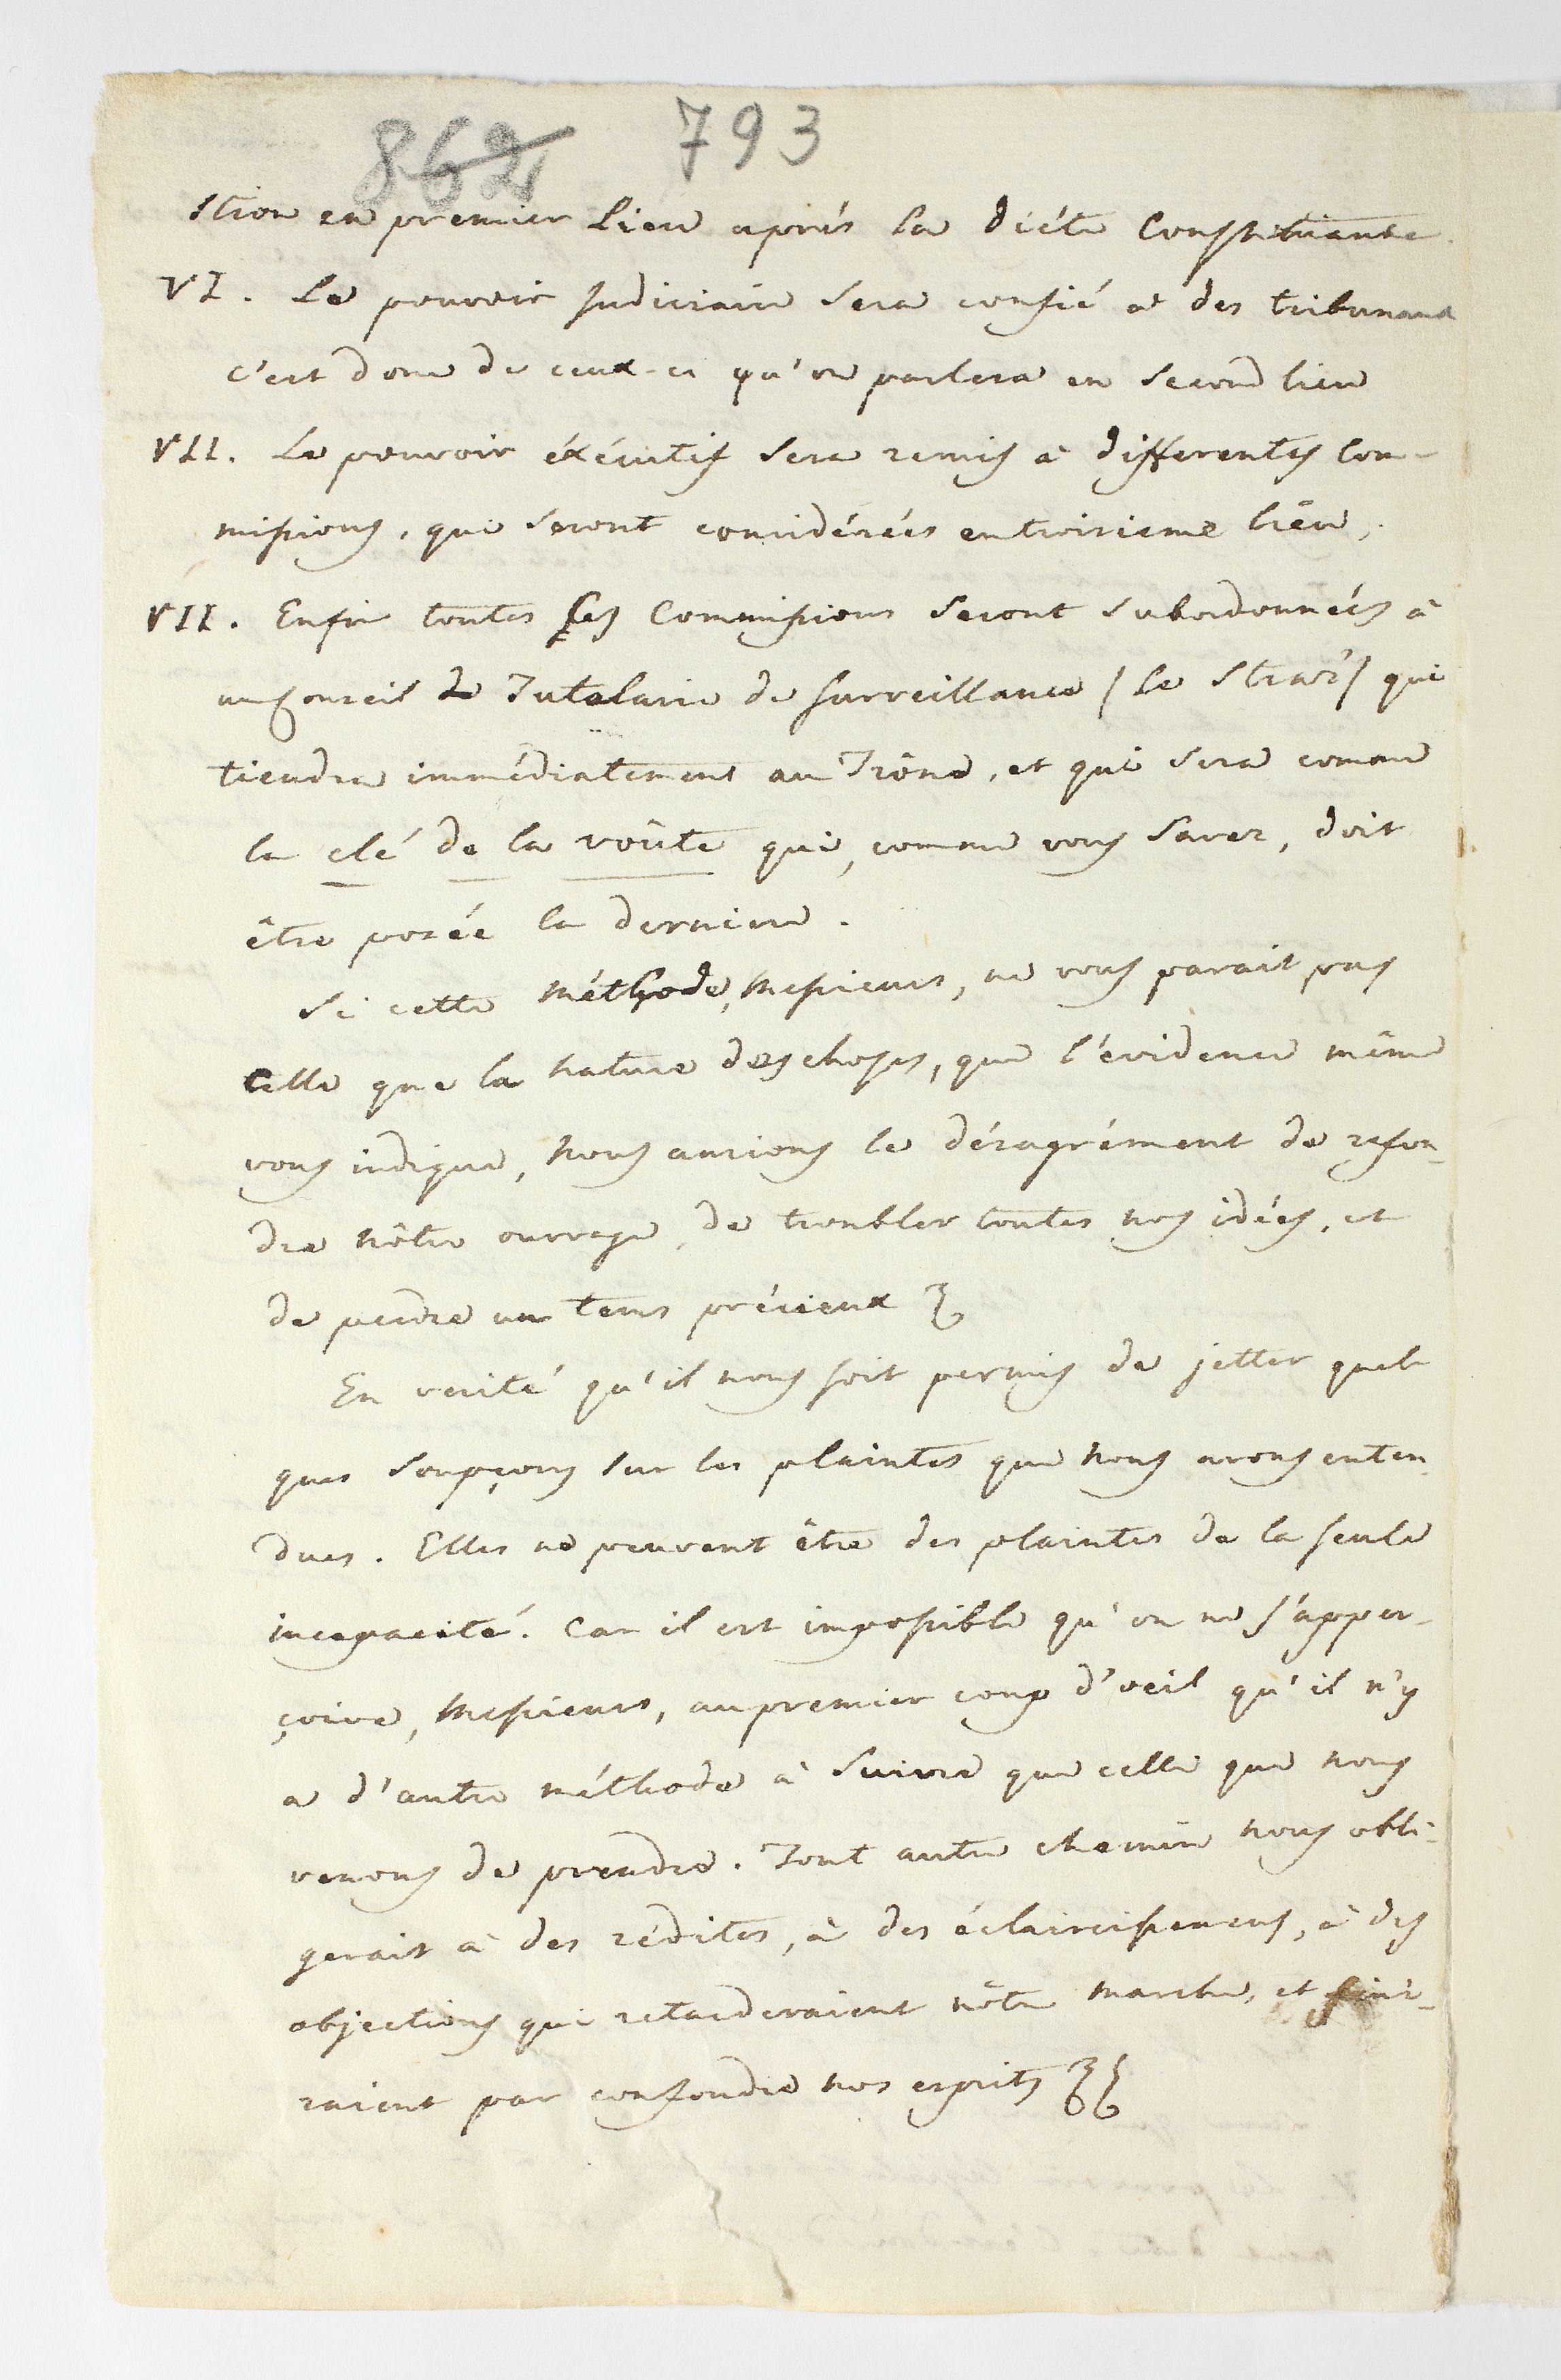 862 793
stion en premier Lieu après la diéte Constituante.
VI. Le pouvoir judiciaire sera confié à des tribunaux
c'est donc de ceux-ci qu'on parlera en second lieu
VII. Le pouvoir éxécutif sera remis à differentes Com-
missions, qui seront considérées en troisieme lieu,
VII. Enfin toutes les Commissions seront subordonnées à
un Conseil de Tutelaire de surveillance / Le Straż / qui
tiendra immédiatement au Trône, et qui sera comme
la clé de la voûte qui, comme vous savez, doit
être posée la derniere.
Si cette méthode, Messieurs, ne vous parait pas
celle que la nature des choses, que l'évidence même
vous indique, nous aurions le désagrément de refon-
dre nôtre ouvrage, de troubler toutes nos idées, et
de perdre un tems précieux
En verité qu'il nous soit permis de jetter quel-
ques soupçons sur les plaintes que nous avons enten-
dues. Elles ne peuvent être des plaintes de la seule
incapacité. Car il est impossible qu'on ne s'apper-
çoive, Messieurs, au premier coup d'oeil qu'il n'y
a d'autre méthode à suivre que celle que nous
venons de prendre. Tout autre chemin nous obli-
gerait à des rédites, à des éclaircissemens, à des
objections qui retarderaient nôtre marche, et fini-
raient par confondre nos esprits